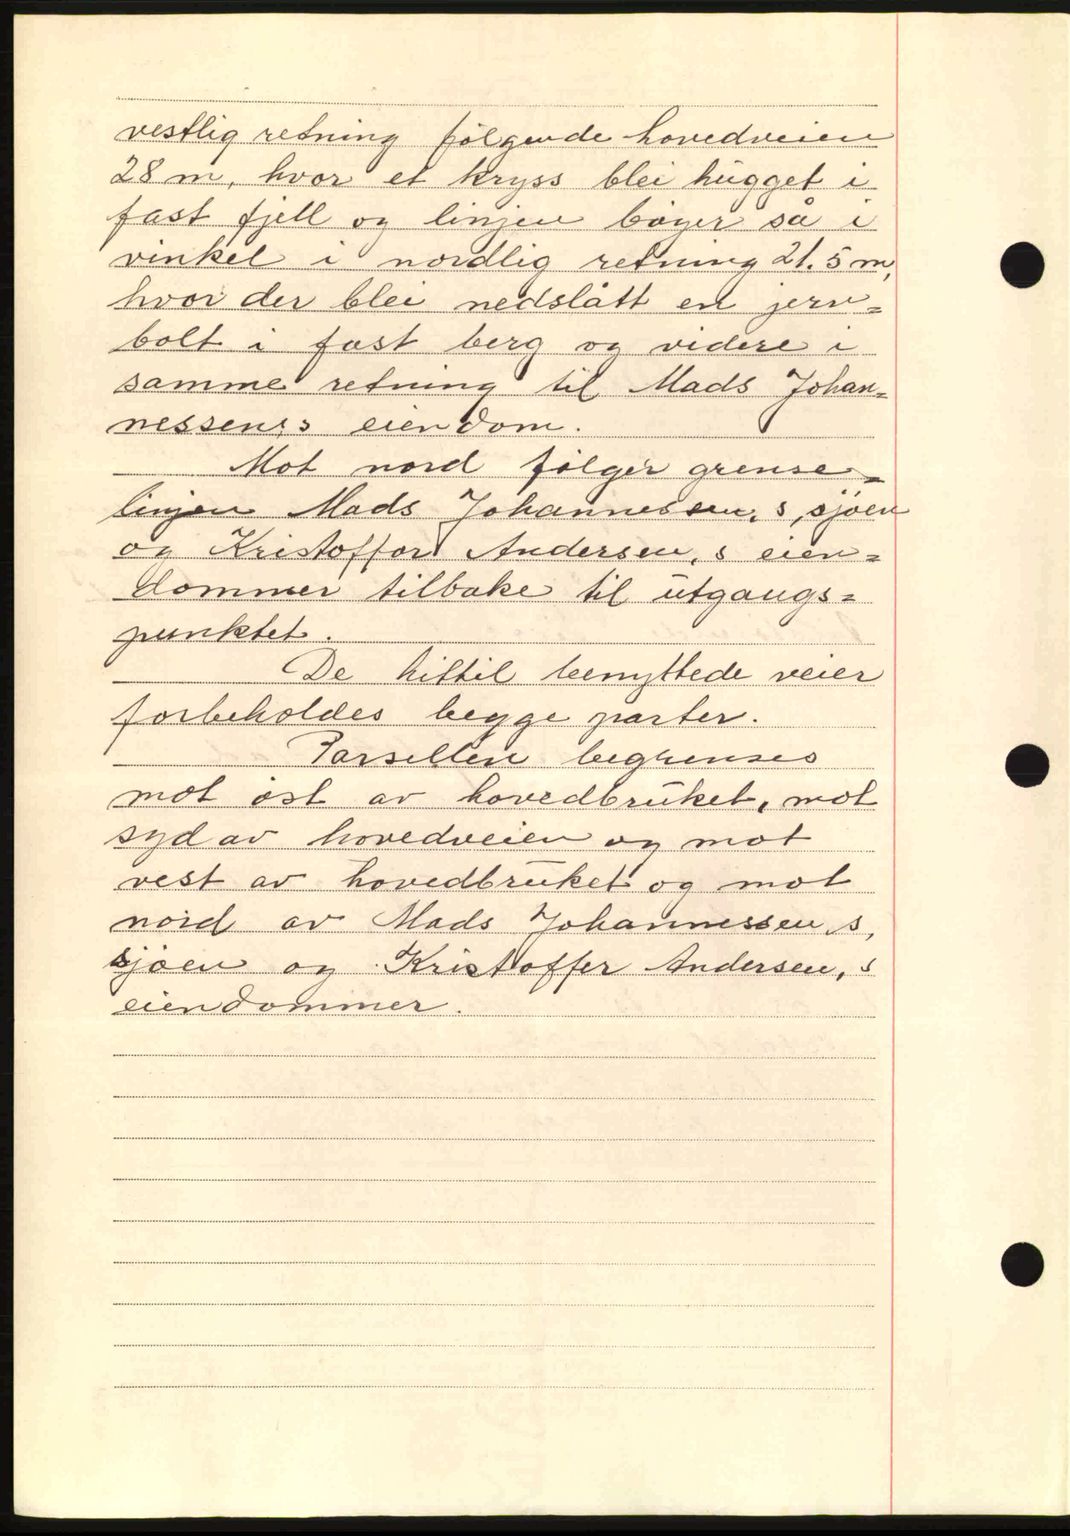 vestlig retning følgende hovedveien
28 m, hvor et kryss blei hugget i
fast fjell og linjen bøyer så i
vinkel i nordlig retning 21.5 m,
hvor der blei nedslått en jern=
bolt i fast berg og videre i
samme retning til Mads Johan=
nessen,s eiendom.
Mot nord følger grense=
linjen Mads Johannessen,s, sjøen
og Kristoffor Andersen,s eien=
dommer tilbake til utgangs=
punktet.
De hittil benyttede veier
forbeholdes begge parter.
Parsellen begrenses
mot øst av hovedbruket, mot
syd av hovedveien og mot
vest av hovedbruket og mot
nord av Mads Johannessen,s,
sjøen og Kristoffer Andersen,s
eiendommer.